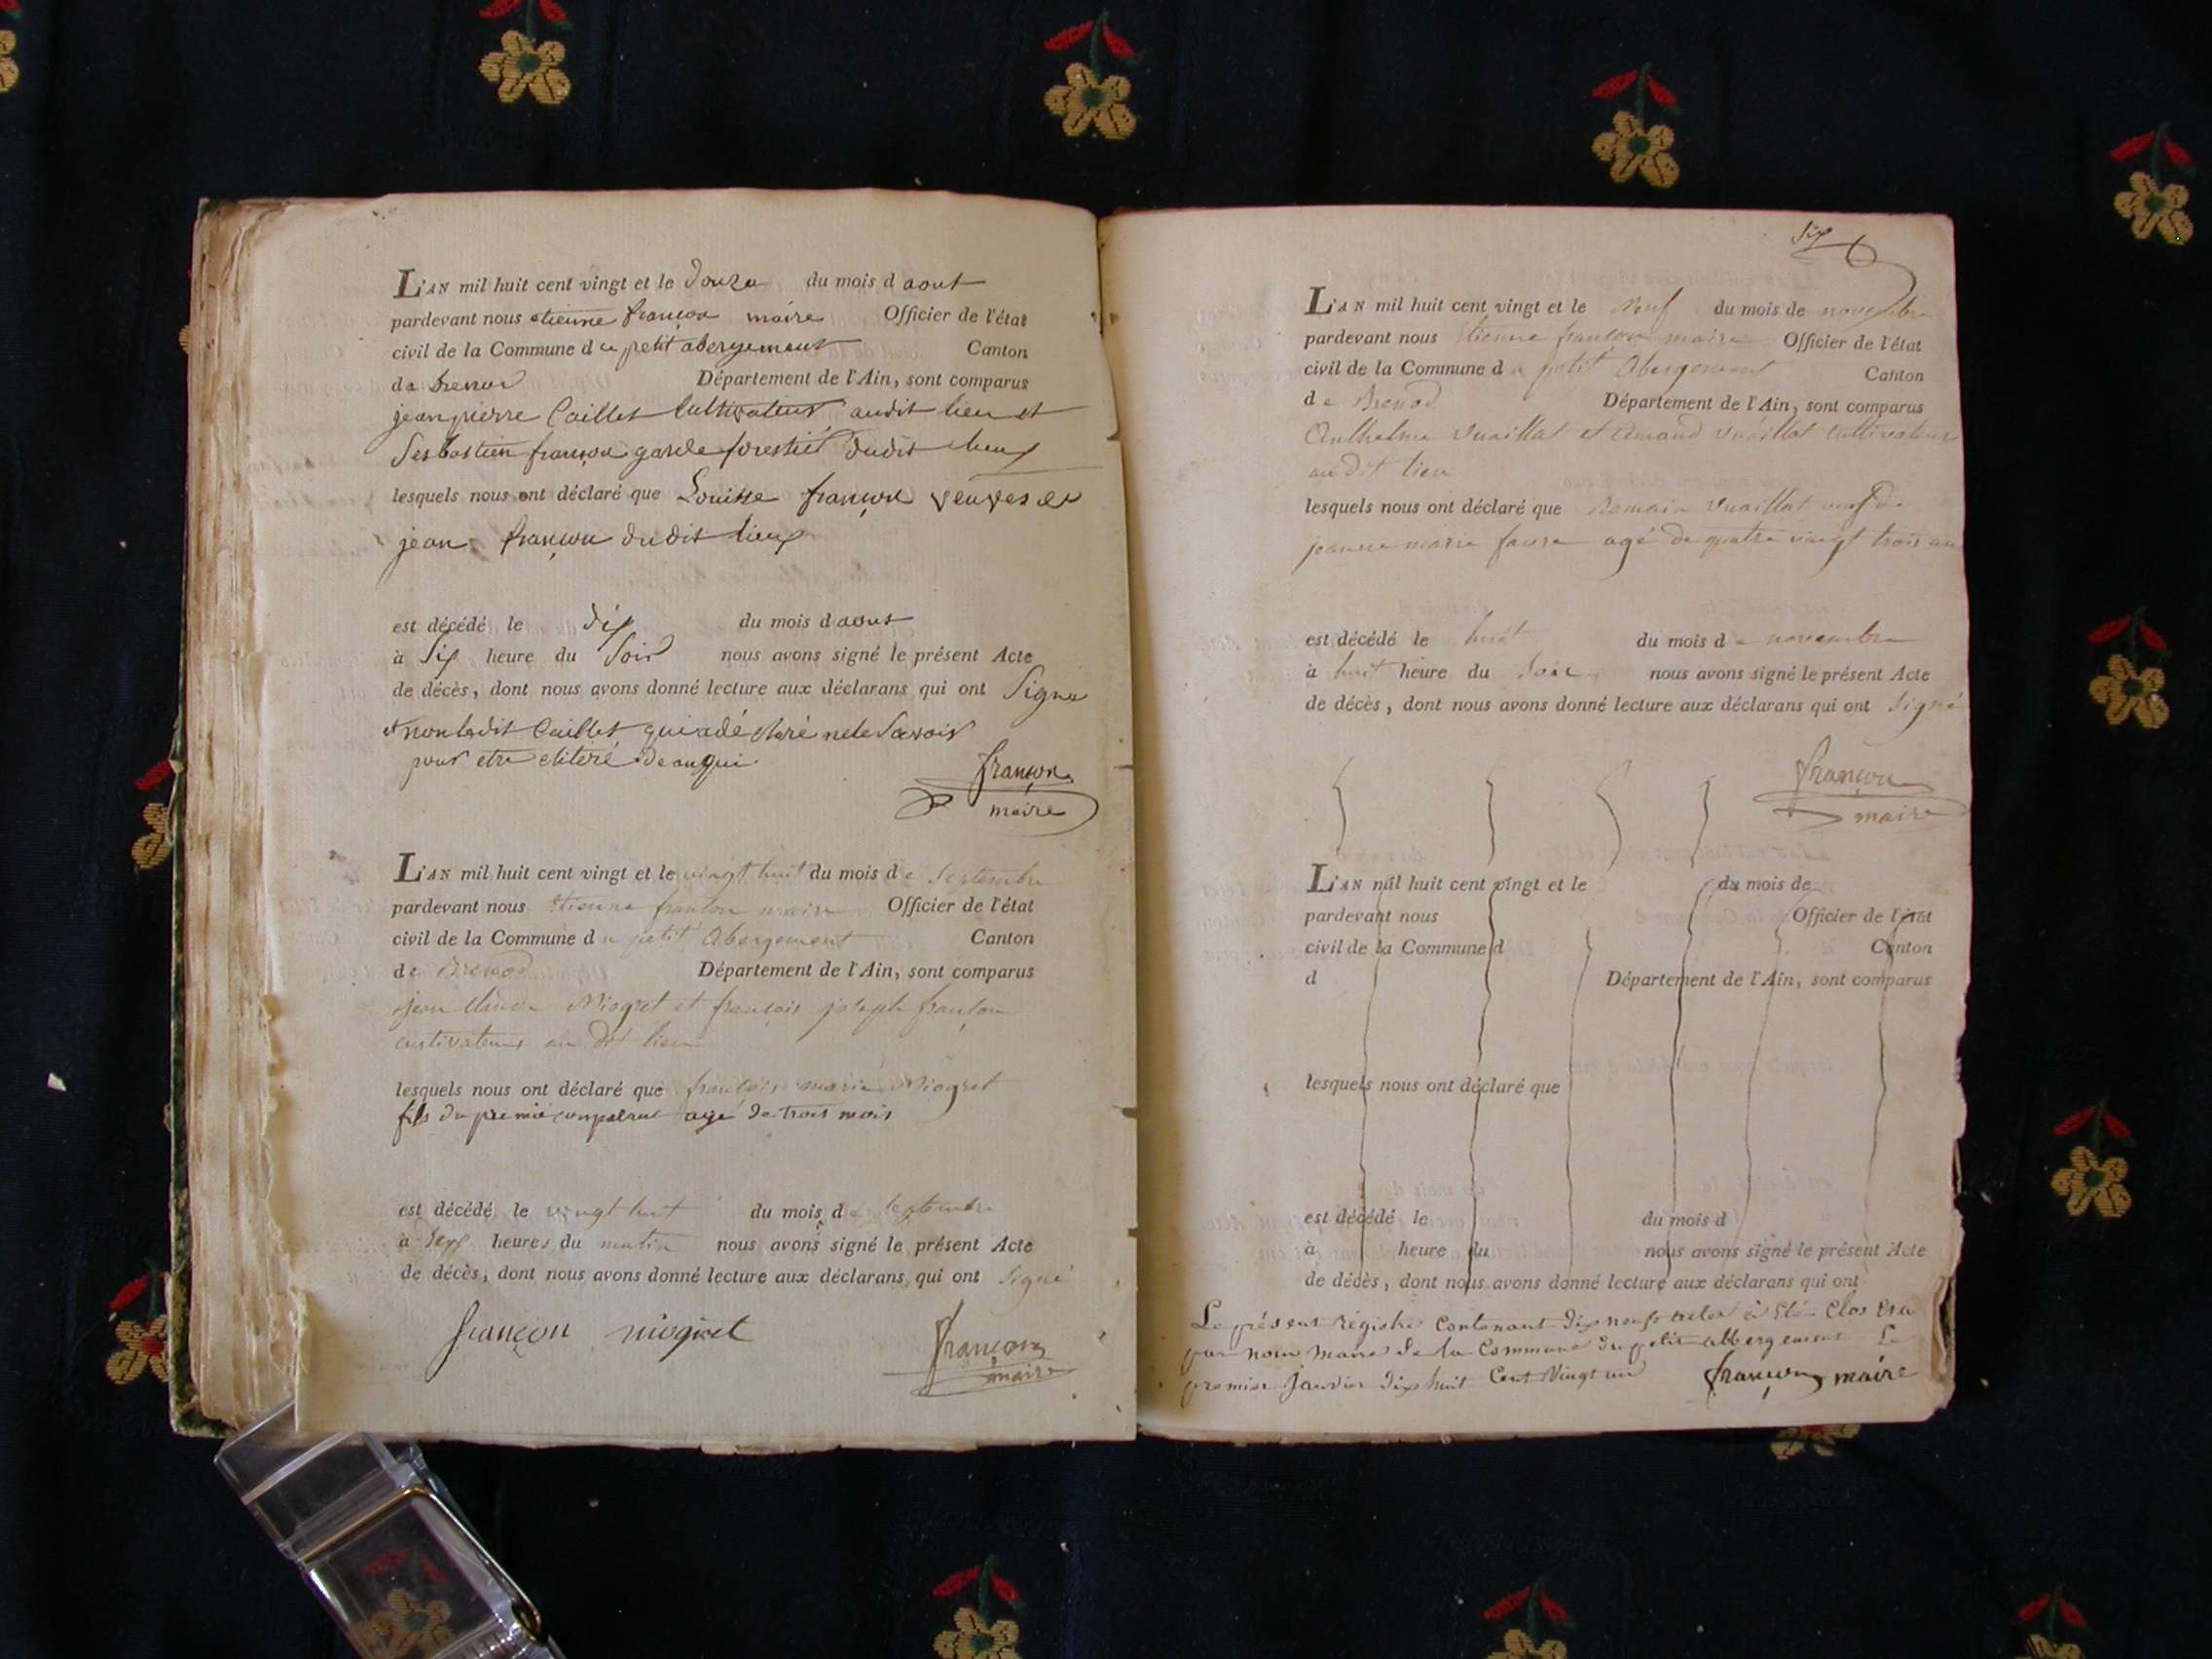 L'AN mil huit cent vingt et le douze du mois d aout
pardevant nous etienne françon maire Officier de l'état
civil de la Commune d u petit abergement Canton
de brenod Département de l'Ain, sont comparus
jean pierre Caillet Cultivateur audit lieu et
Sesbastien françon garde forestié dudit lieux
lesquels nous ont déclaré que Louisse françon veuve de
jean françon dudit lieux
est décédé le dix du mois d aout
à Six heure du Soir nous avons signé le présent Acte
de décès, dont nous avons donné lecture aux déclarans qui ont Signe
et non ledit Caillet qui a déclaré ne le Savoir
pour etre
françon
maire
L'AN mil huit cent vingt et le vingt huit du mois d e Septembre
pardevant nous Etienne françon maire Officier de l'état
civil de la Commune d u petit Abergement Canton
de Brenod Département de l'Ain, sont comparus
jean Claude Niogret et françois joseph françon
cultivateurs au dit lieu
lesquels nous ont déclaré que françois marie Niogret
fils du premie comparant age de trois mois
est décédé le vingt huit du mois d e Septembre
à Sept heures du matin nous avons signé le présent Acte
de décès, dont nous avons donné lecture aux déclarans qui ont Signé
françon niogret
françon
maire
Six
L'AN mil huit cent vingt et le Neuf du mois de novembre
pardevant nous Etienne françon maire Officier de l'état
civil de la Commune d u petit Abergement Canton
de Brenod Département de l'Ain, sont comparus
Anthelme Vuaillat et Amand Vuaillat cultivateurs
au dit lieu
lesquels nous ont déclaré que Romain Vuaillat veuf de
jeanne marie favre agé de quatre vingt trois an
est décédé le huit du mois d e novembre
à huit heure du Soir nous avons signé le présent Acte
de décès, dont nous avons donné lecture aux déclarans qui ont Signé
françon
maire
L'AN mil huit cent vingt et le du mois de
pardevant nous Officier de l'état
civil de la Commune d Canton
d Département de l'Ain, sont comparus
lesquels nous ont déclaré que
est décédé le du mois d
à heure du nous avons signé le présent Acte
de décès, dont nous avons donné lecture aux déclarans qui ont
Le présent Régistre Contenant dix neuf actes à été Clos
par nous Maire de la Commune du petit abbergement Le
premier janvier dix huit Cent Vingt un françon maire